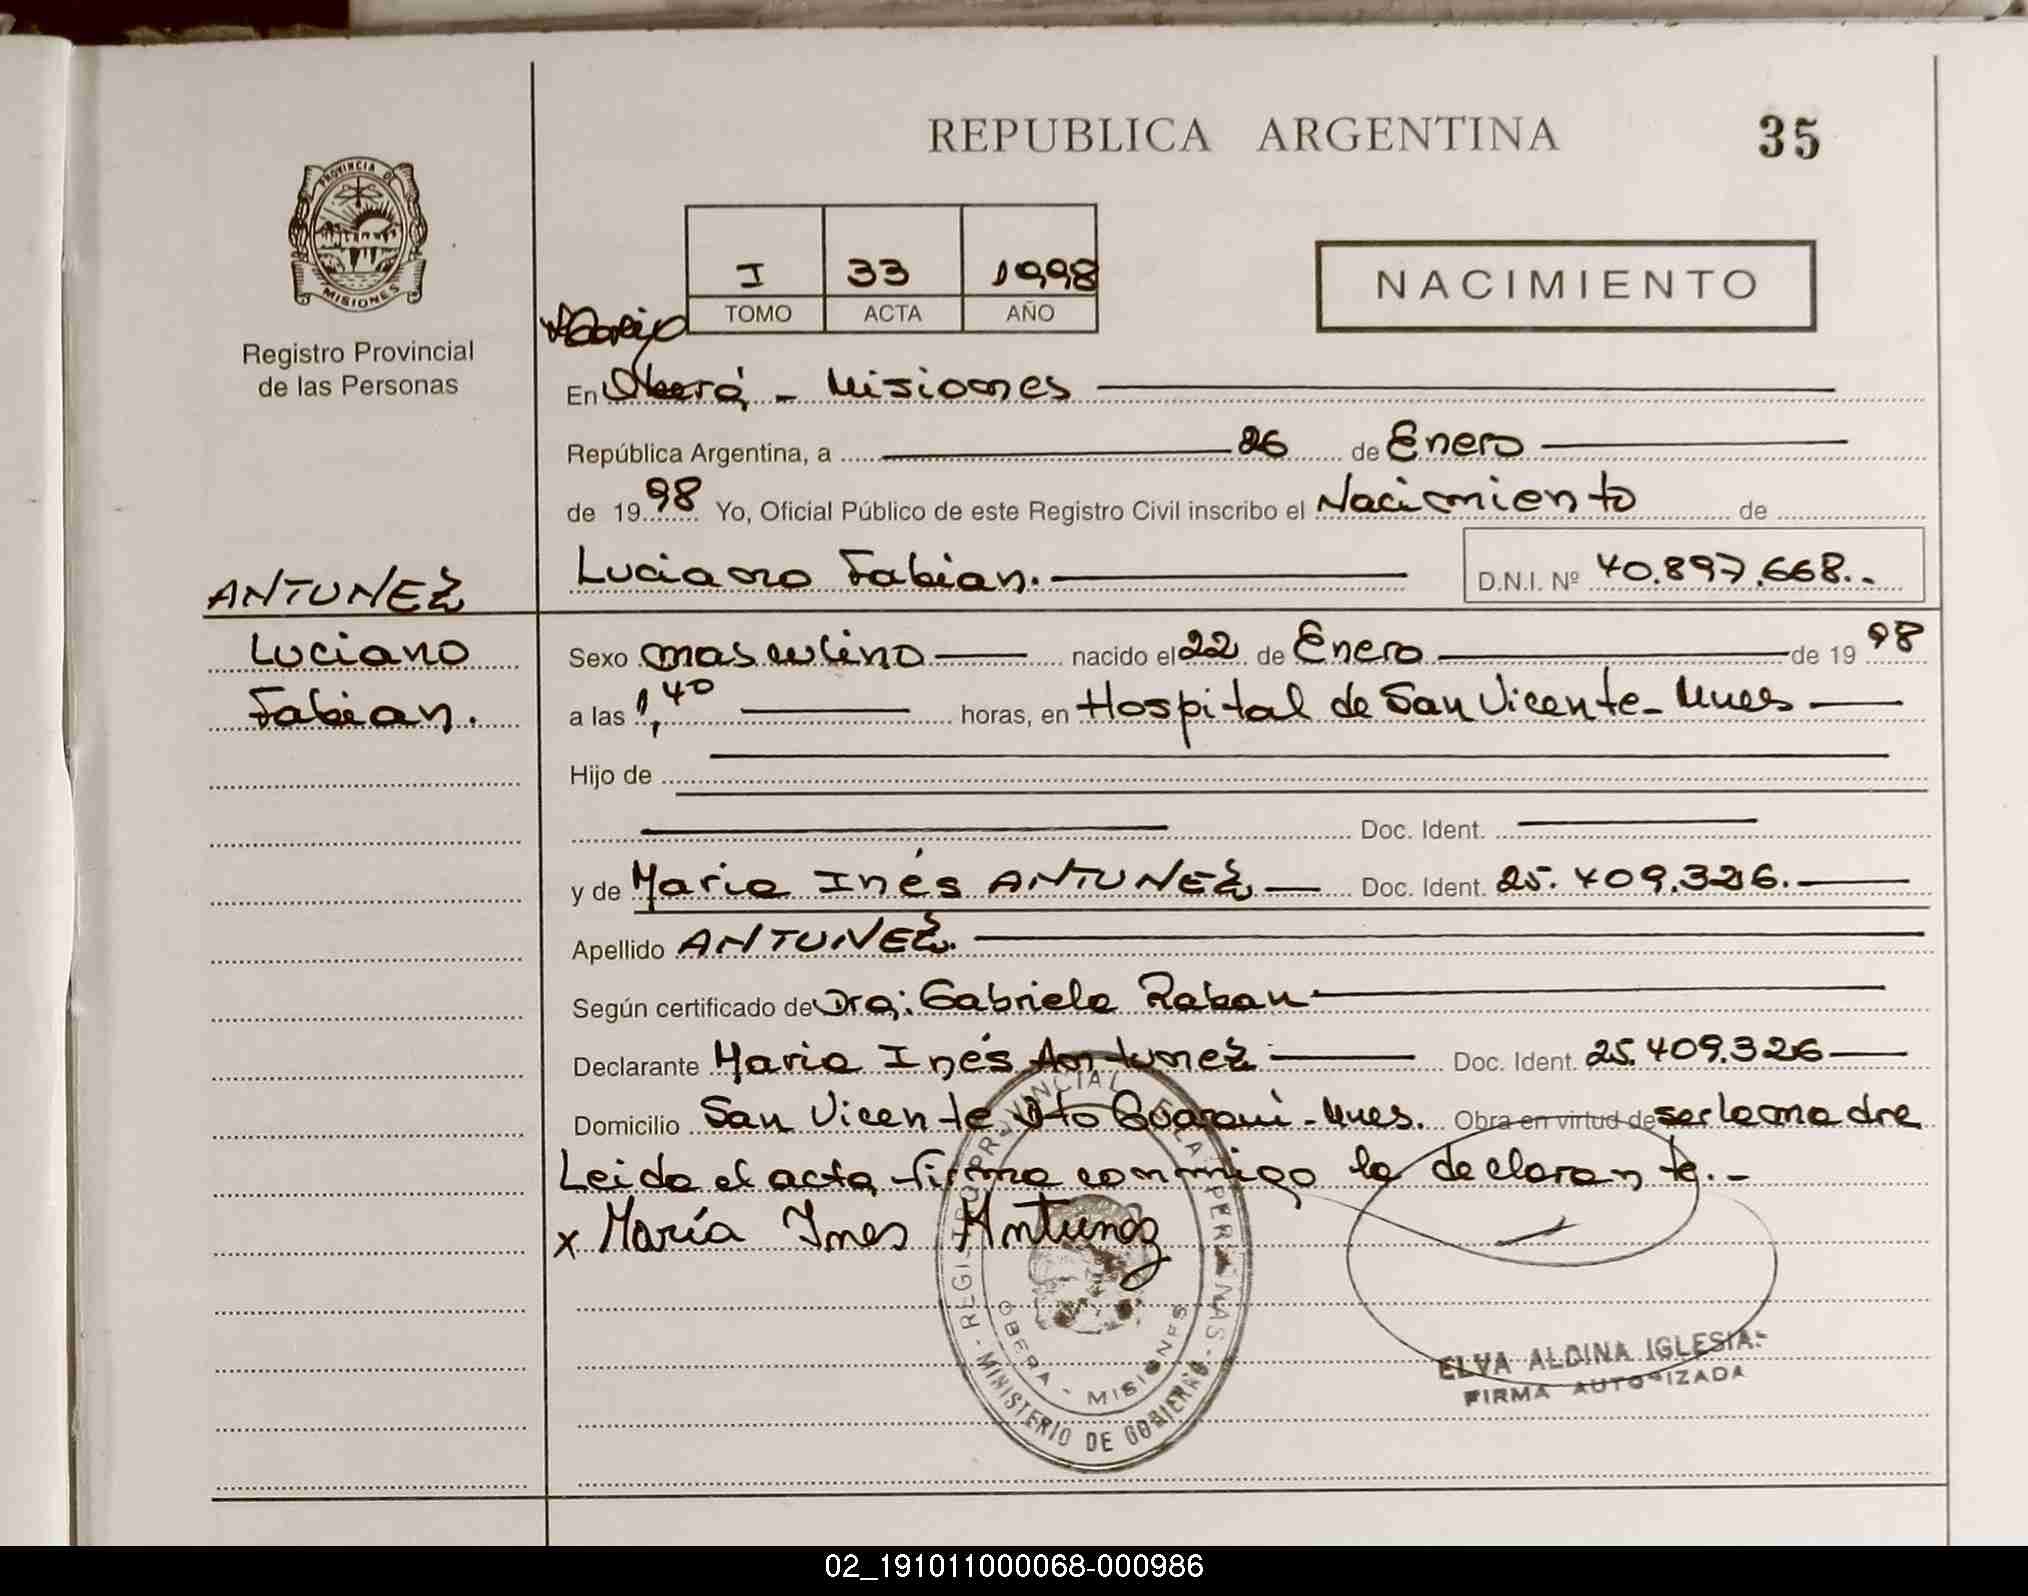 REPUBLICA ARGENTINA
35
PROVINCIA DE
MISIONES
Registro Provincial
de las Personas
I 33 1998
TOMO ACTA AÑO
NACIMIENTO
En Oberá - Misiones
República Argentina, a 26 de Enero
de 1998 Yo, Oficial Público de este Registro Civil inscribo el Nacimiento de
Luciano Fabian. D.N.I. Nº 40.897.668.-
ANTUNEZ
Luciano
Fabian.
Sexo masculino nacido el 22 de Enero de 1998
a las 1,40 horas, en Hospital de San Vicente - Mnes
Hijo de
Doc. Ident.
y de Maria Inés ANTUNEZ Doc. Ident. 25.409.326.
Apellido ANTUNEZ.
Según certificado de Dra: Gabriela Raban
Declarante Maria Inés Antunez Doc. Ident. 25.409.326
Domicilio San Vicente Dto Guaraní - Mnes. Obra en virtud de ser la madre
Leida el acta firma conmigo la declarante.-
x María Ines Antunez
REGISTRO PROVINCIAL DE LAS PERSONAS
OBERA - MISIONES
MINISTERIO DE GOBIERNO
ELVA ALDINA IGLESIAS
FIRMA AUTORIZADA
02_191011000068-000986